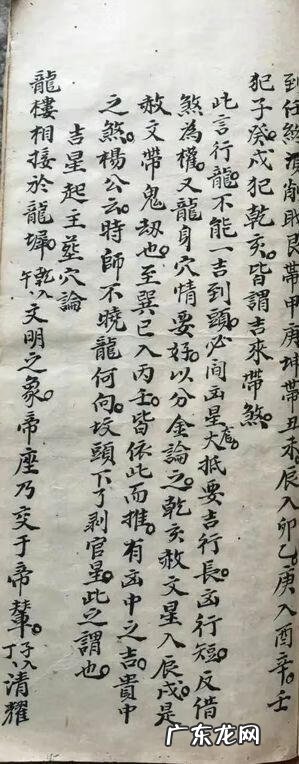 到任煞須削耿艮帶甲庚坤帶丑未辰入卯乙庚入酉辛壬
犯子癸戌犯乾亥皆謂吉來帶煞
此言行龍不能一吉到頭必間凶星大抵要吉行長凶行短反借
煞為權又龍身穴情要好以分金論之乾亥赦文星入辰戌是
赦文帶鬼劫也至巽巳入丙壬皆依此而推有凶中之吉貴中
之煞楊公云時師不曉龍何向坟頭下了剥官星此之謂也
吉星起主塟穴論
龍樓相接於龍墀乾入午文明之象帝座乃交于帝輦子入丁清耀
广东龙网